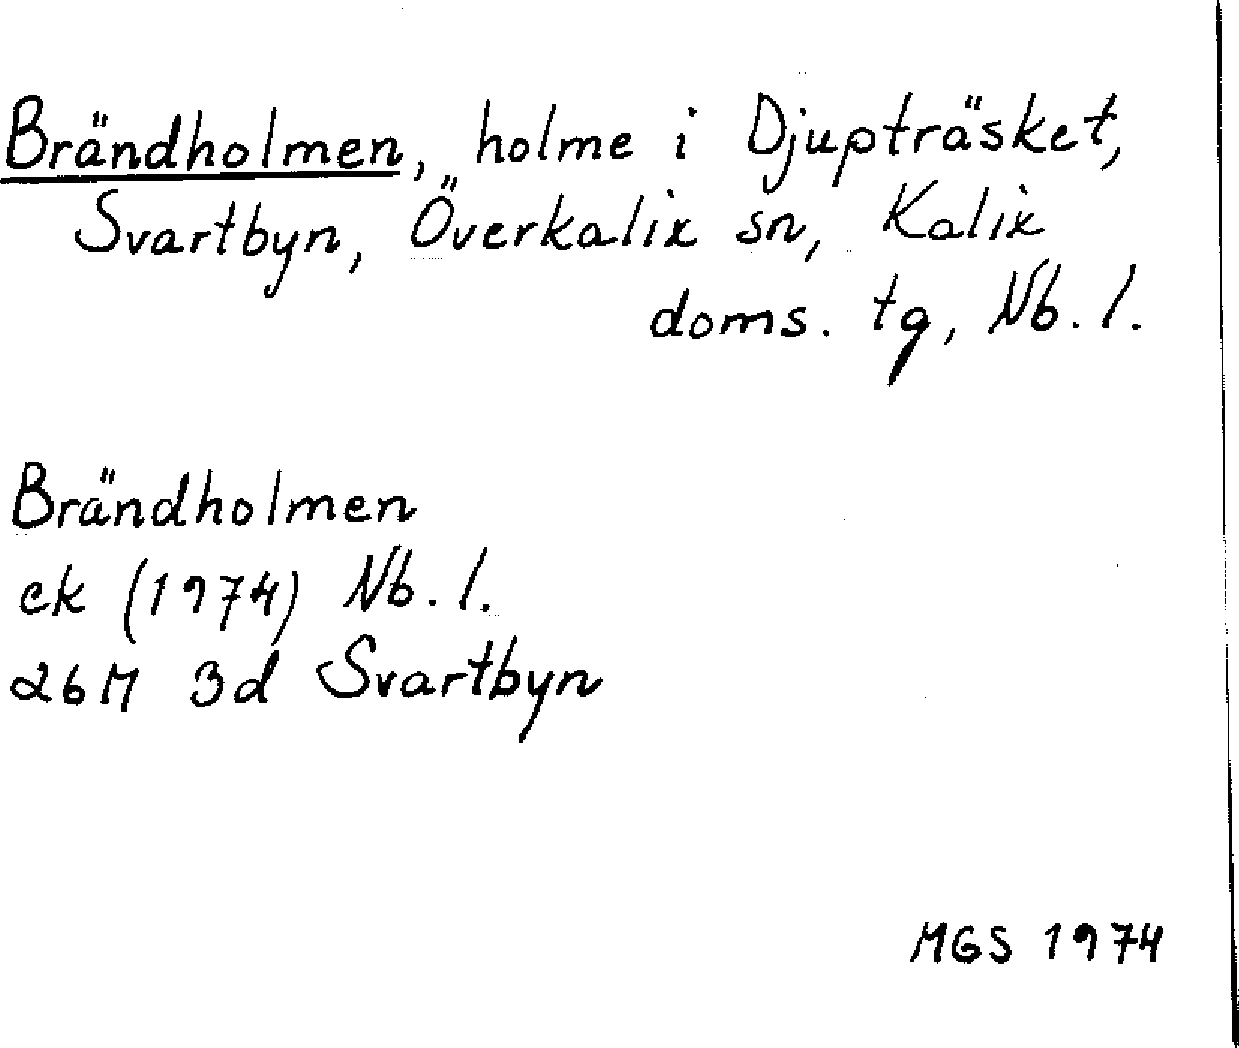 Brändholmen, holme i Djupträsket,
Svartbyn, Överkalix sn, Kalix
doms. tg, Nb. l.
Brändholmen
ek (1974) Nb. l.
26M 3d Svartbyn
MGS 1974